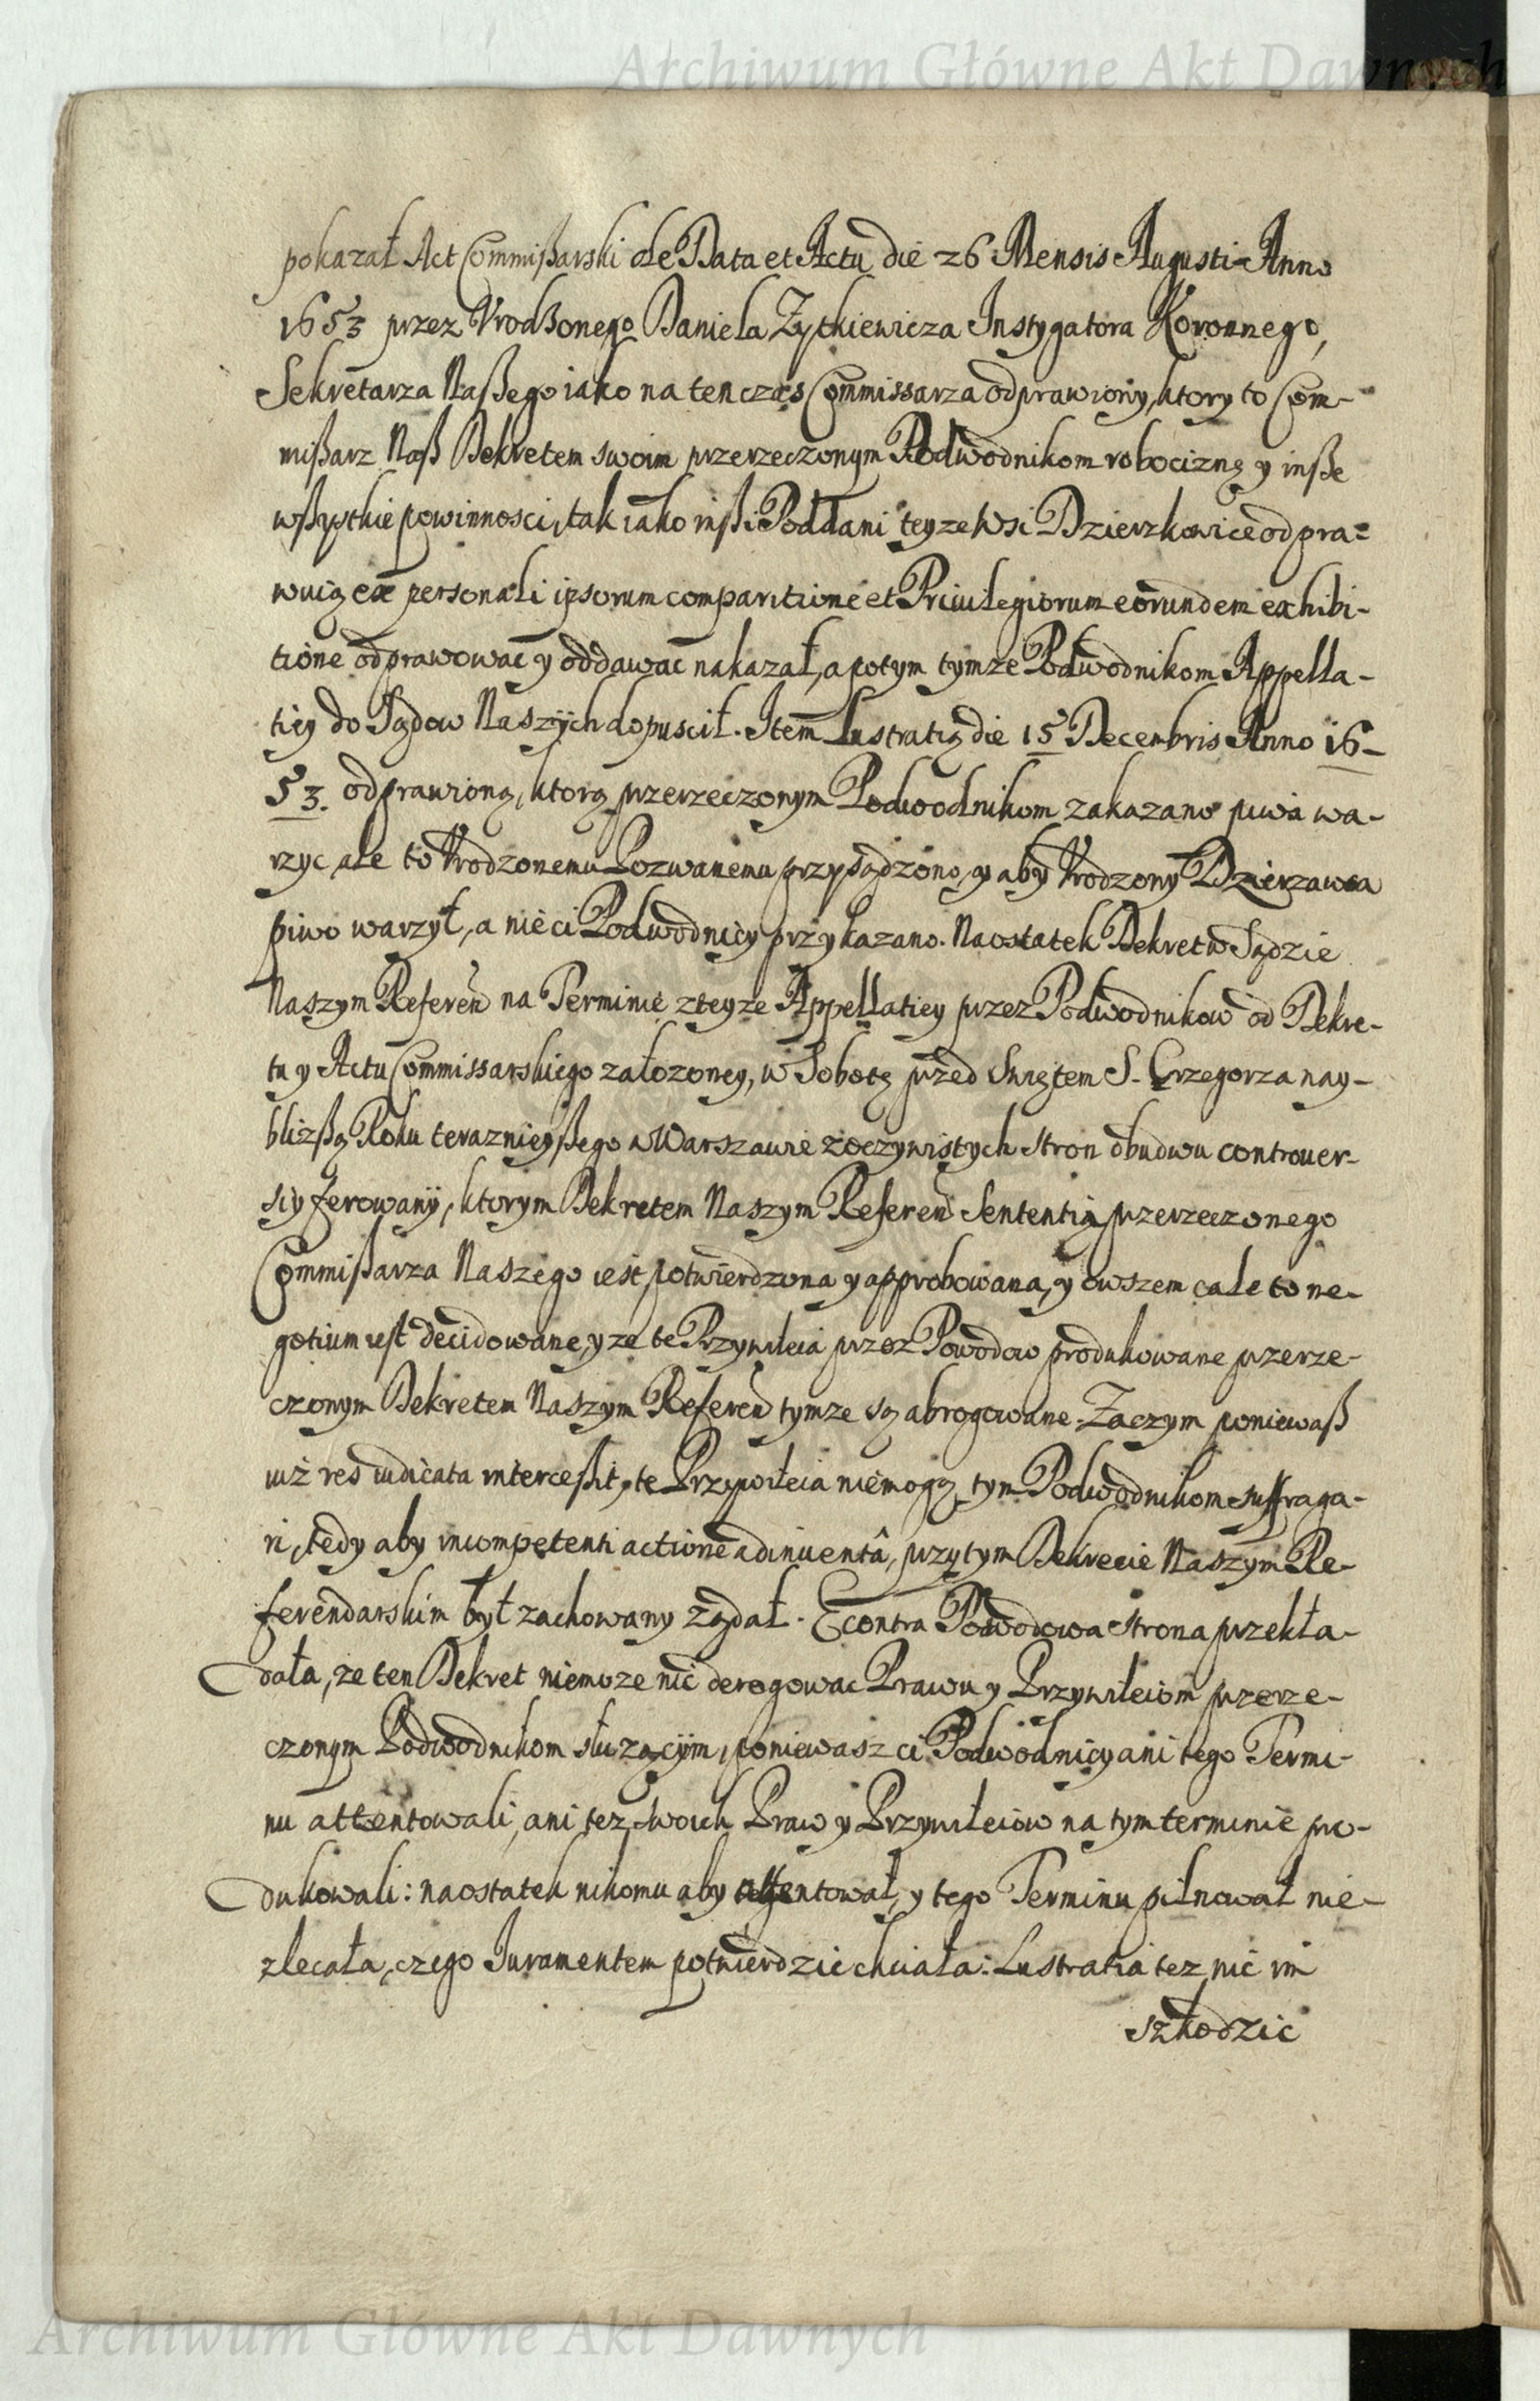 Archiwum Główne Akt Dawnych
pokazał Act Commißarski de Data et Actu die 26 Mensis Augusti Anno
1653 przez Vrodzonego Daniela Zytkiewicza Instygatora Koronnego,
Sekretarza Naßego iako na ten czas Commissarza odprawiony, ktory to Com-
mißarz Naß Dekretem swoim przerzeczonym Podwodnikom robociznę y inße
wßystkie powinnosci, tak iako inßi Poddani teyze wsi Dzierzkowice odpra-
wuią ex personali ipsorum comparitione et Priuilegiorum eorundem exhibi-
tione odprawować y oddawać nakazał, a potym tymze Podwodnikom Appella-
tiey do Sądow Naszÿch dopuscił. Item Lustratią die 15 Decembris Anno 16-
53. odprawioną, ktorą przerzeczonym Podwodnikom zakazano piwa wa-
rzyc, ale to Vrodzonemu Pozwanemu przysądzono, y aby Vrodzony Dzierzawca
piwo warzył, a nie ci Podwodnicy przykazano. Naostatek Dekret w Sądzie
Naszym Referen̄d na Terminie z teyze Appellatiey przez Podwodnikow od Dekre-
tu y Actu Commissarskiego załozoney, w Sobotę przed Swiętem S. Grzegorza nay-
blizßą Roku teraznieyßego w Warszawie z oczywistych stron obudwu controuer-
siy ferowanÿ, ktorym Dekretem Naszym Referend Sententia przerzeczonego
Commißarza Naszego iest potwierdzona y approbowana, y owszem cale to ne-
gotium iest decidowane, y ze te Przywileia przez Powodow produkowane przerze-
czonym Dekretem Naszym Referend tymze są abrogowane. Zaczym poniewaß
iuż res iudicata interceßit, y te Przywileia niemogą tym Podwodnikom suffraga-
ri, tedy aby incompetenti actione adinuentâ, przy tym Dekrecie Naszym Re-
ferendarskim był zachowany ządał. E contra Powodowa strona przekła-
dała, ze ten Dekret niemoze nic derogowac Prawu y Przywileiom przerze-
czonym Podwodnikom słuzącÿm, poniewasz ci Podwodnicy ani tego Termi-
nu attentowali, ani tez swoich Praw y Przywileiow na tym terminie pro-
dukowali: naostatek nikomu aby attentował, y tego Terminu pilnował nie-
zlecała, czego Iuramentem potwierdzic chciała: Lustratia tez nic im
szkodzic
Archiwum Główne Akt Dawnych